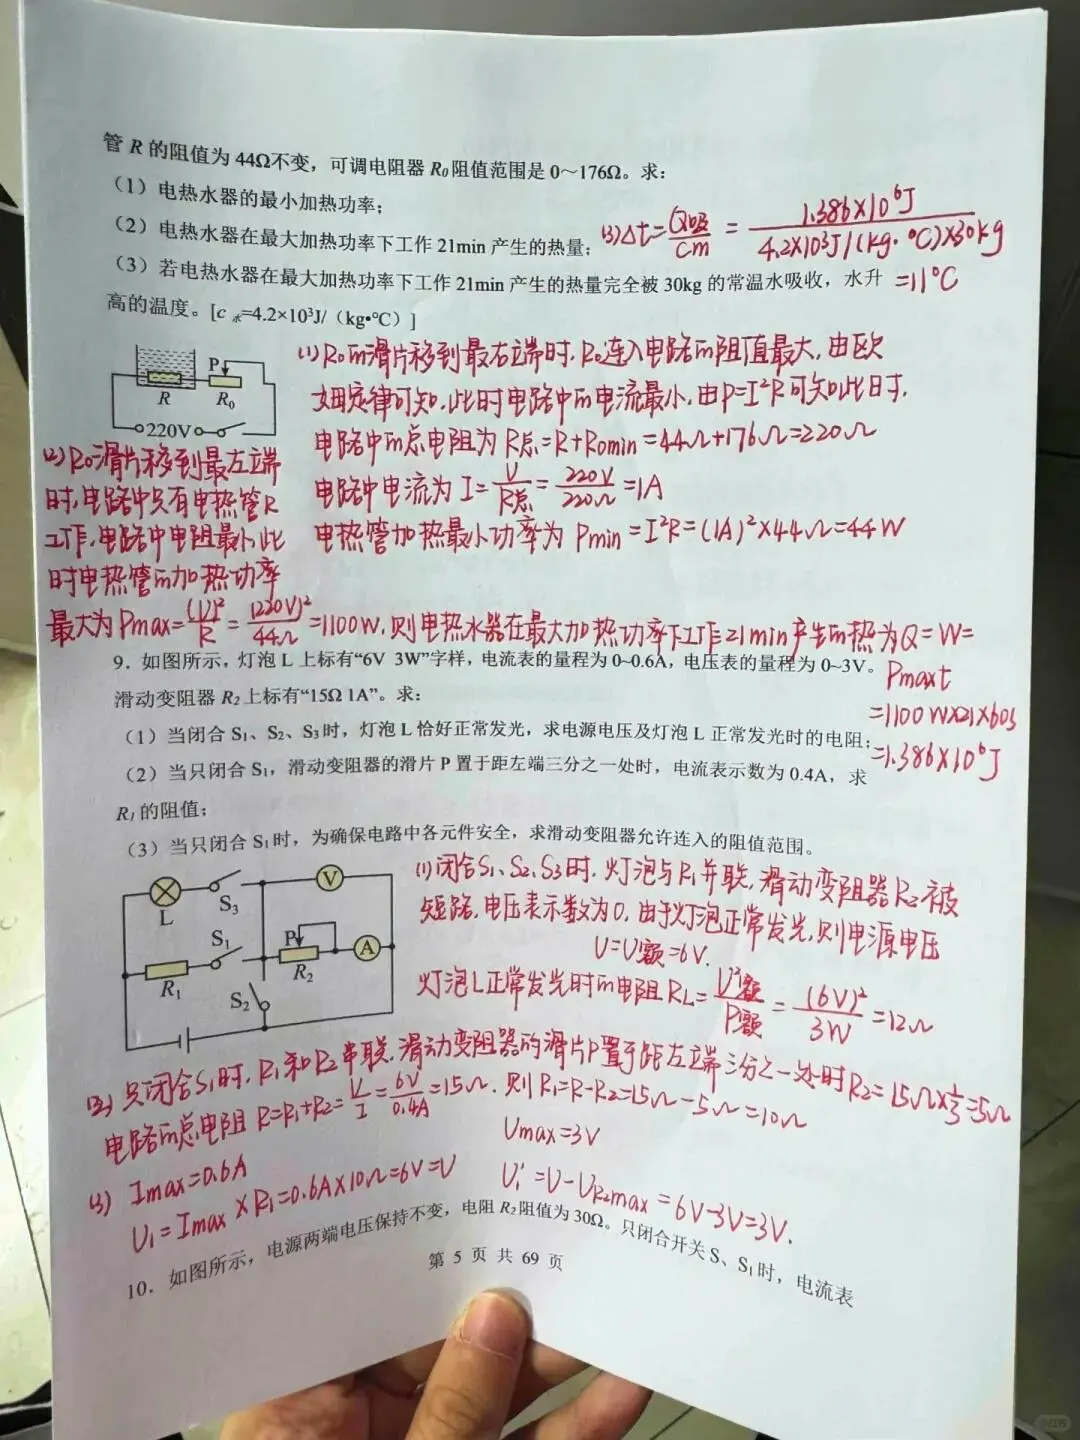 管 R 的阻值为 44Ω不变，可调电阻器 R₀ 阻值范围是 0～176Ω。求：
（1）电热水器的最小加热功率；
（2）电热水器在最大加热功率下工作 21min 产生的热量；
(3)Δt=Q吸/cm = 1.386×10⁶J/4.2×10³J/(kg·℃)×30kg
（3）若电热水器在最大加热功率下工作 21min 产生的热量完全被 30kg 的常温水吸收，水升
=11℃
高的温度。[c 水=4.2×10³J/（kg•℃）]
P
R
R₀
220V
(1) R₀的滑片移到最右端时，R₀连入电路的阻值最大，由欧
姆定律可知，此时电路中的电流最小，由P=I²R可知此时，
电路中的总电阻为 R总=R+R₀min=44Ω+176Ω=220Ω
电路中电流为 I=U/R总=220V/220Ω=1A
电热管加热最小功率为 Pmin=I²R=(1A)²×44Ω=44W
(2) R₀滑片移到最左端
时，电路中只有电热管R
工作，电路中电阻最小，此
时电热管的加热功率
最大为 Pmax=(U)²/R=(220V)²/44Ω=1100W，则电热水器在最大加热功率下工作21min产生的热为Q=W=
Pmaxt
=1100W×21×60s
=1.386×10⁶J
9．如图所示，灯泡 L 上标有“6V 3W”字样，电流表的量程为 0~0.6A，电压表的量程为 0~3V。
滑动变阻器 R₂ 上标有“15Ω 1A”。求：
（1）当闭合 S₁、S₂、S₃时，灯泡 L 恰好正常发光，求电源电压及灯泡 L 正常发光时的电阻；
（2）当只闭合 S₁，滑动变阻器的滑片 P 置于距左端三分之一处时，电流表示数为 0.4A，求
R₁ 的阻值；
（3）当只闭合 S₁ 时，为确保电路中各元件安全，求滑动变阻器允许连入的阻值范围。
L
S₃
V
S₁
P
A
R₁
R₂
S₂
(1)闭合S₁、S₂、S₃时，灯泡与R₁并联，滑动变阻器R₂被
短路，电压表示数为0，由于灯泡正常发光，则电源电压
U=U额=6V.
灯泡L正常发光时的电阻 RL=U²额/P额=(6V)²/3W=12Ω
(2) 只闭合S₁时，R₁和R₂串联，滑动变阻器的滑片P置于距左端三分之一处时R₂=15Ω×1/3=5Ω
电路的总电阻 R=R₁+R₂=U/I=6V/0.4A=15Ω. 则 R₁=R-R₂=15Ω-5Ω=10Ω
(3) Imax=0.6A
Umax=3V
U₁=Imax×R₁=0.6A×10Ω=6V=U
U₁'=U-UR₂max=6V-3V=3V.
10．如图所示，电源两端电压保持不变，电阻 R₂ 阻值为 30Ω。只闭合开关 S、S₁ 时，电流表
第 5 页 共 69 页
小红书